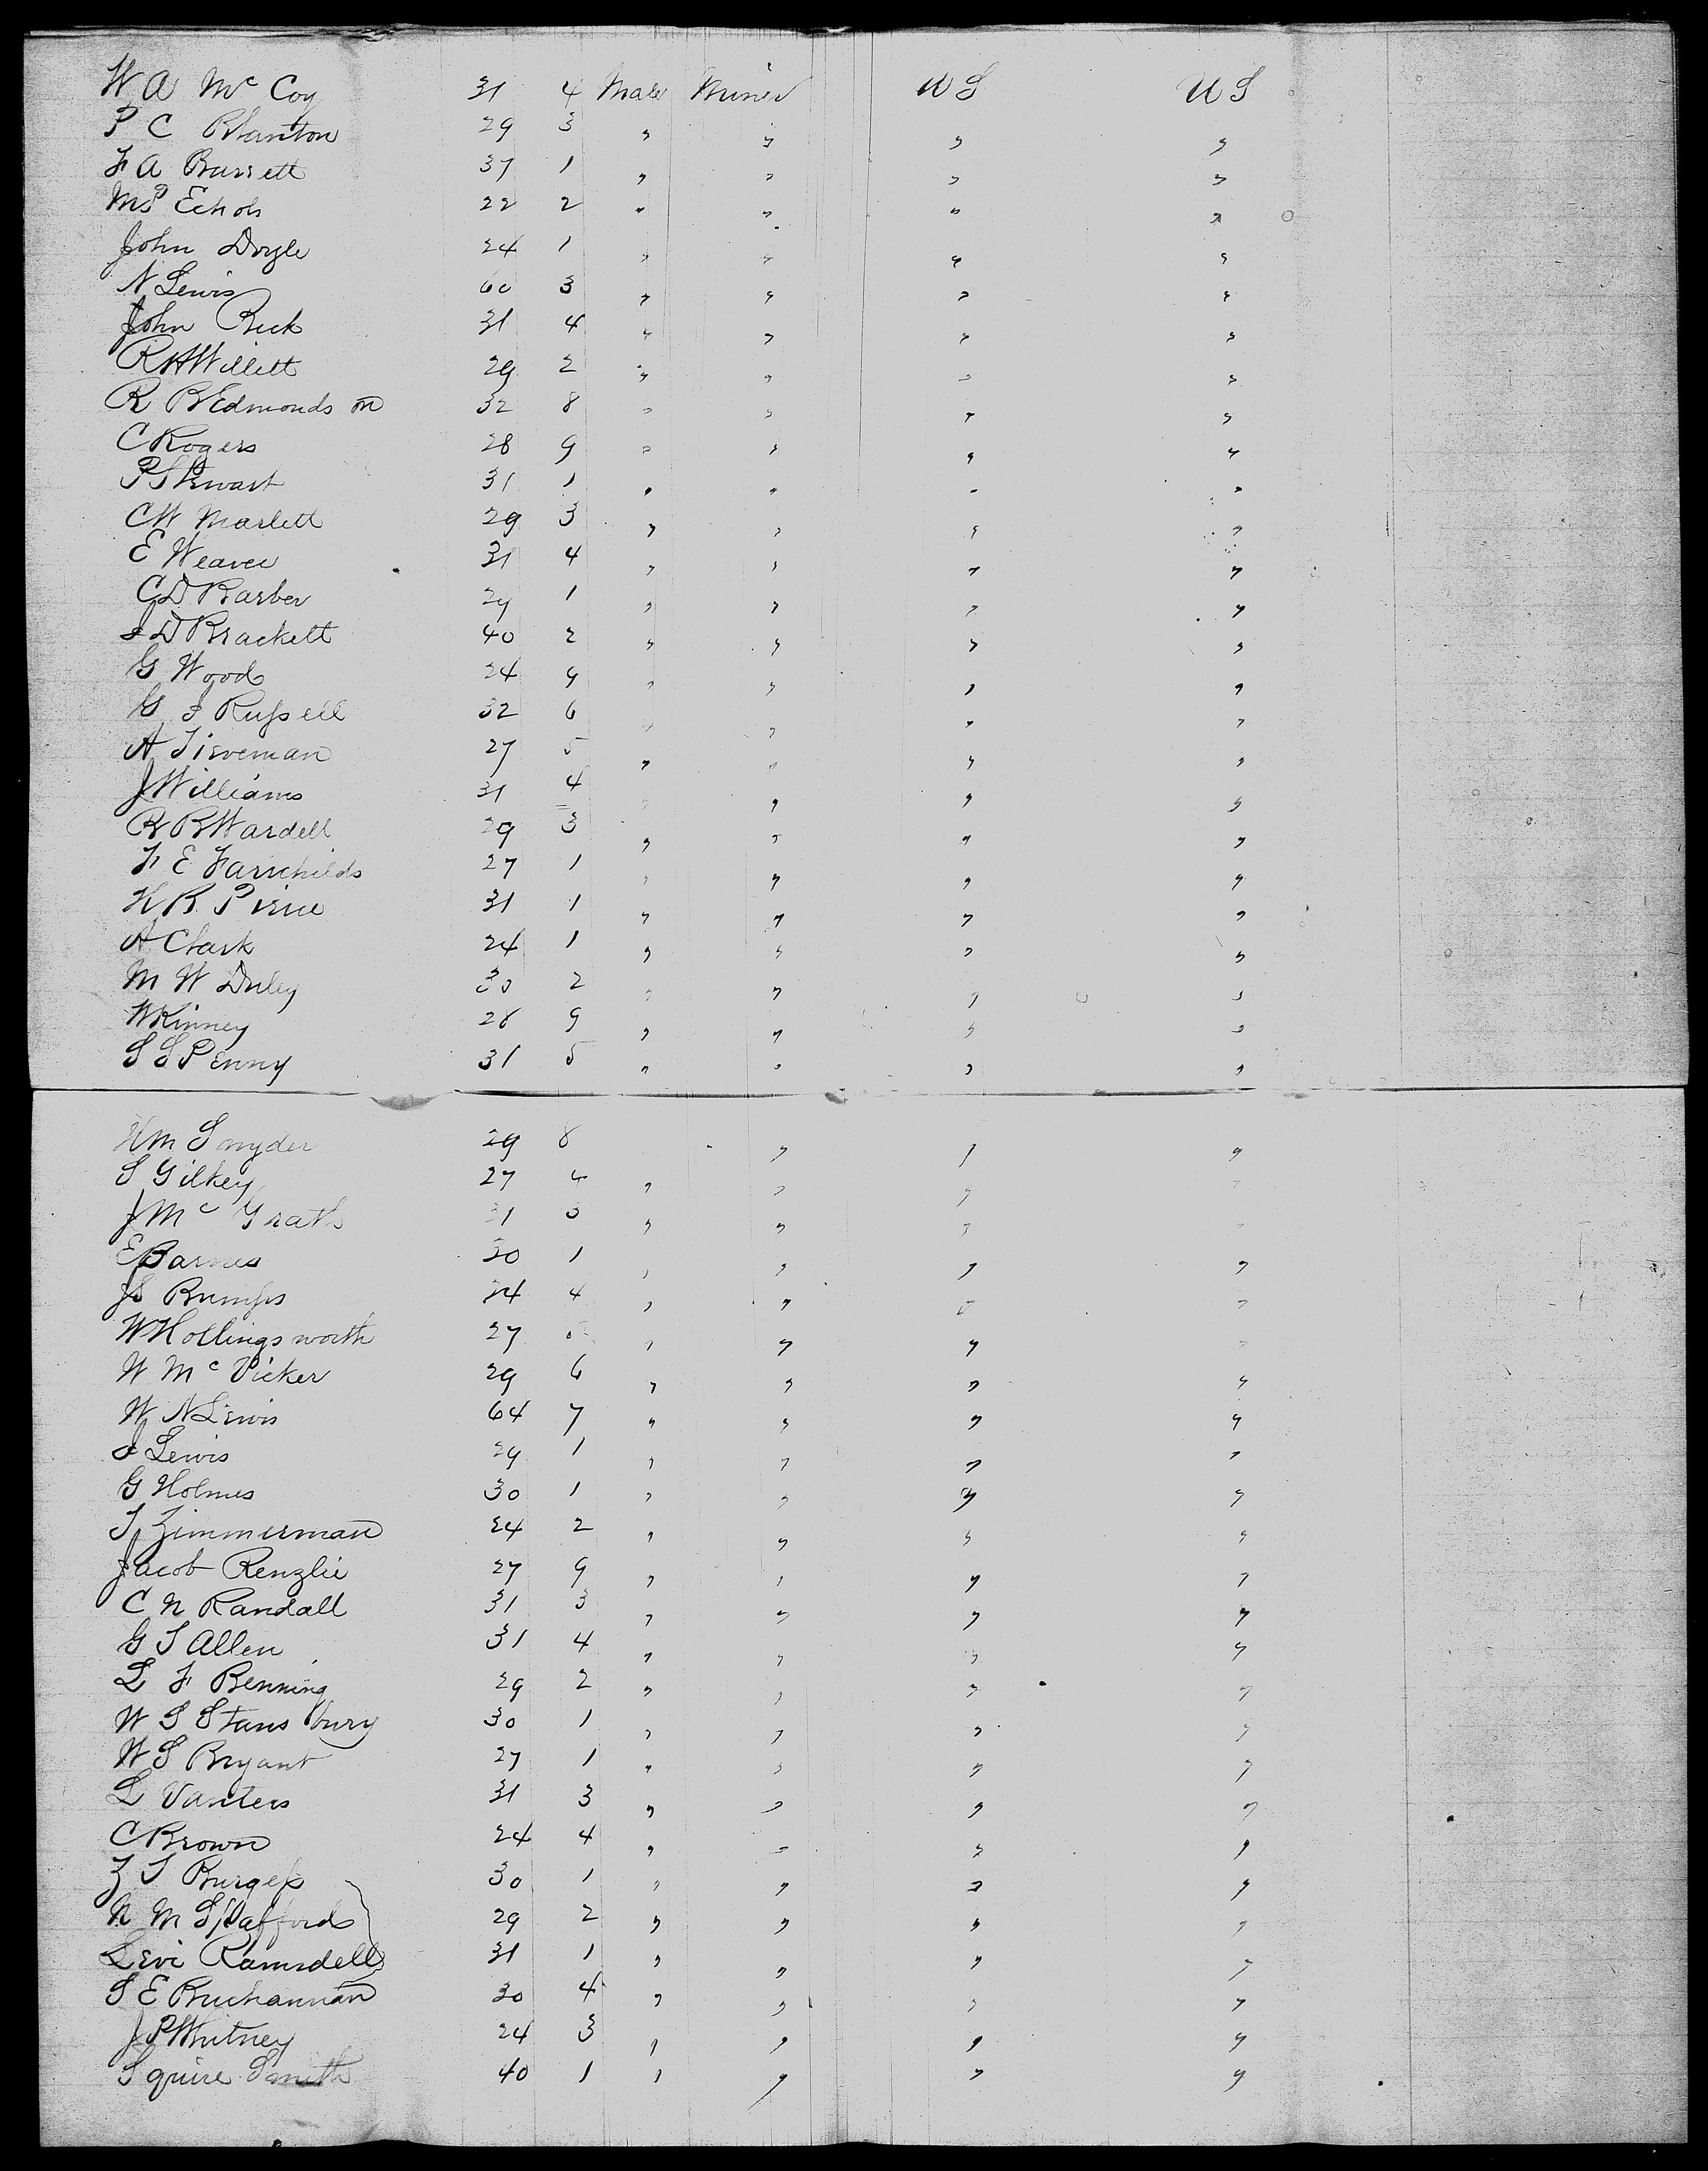 W A McCoy 31 4 Male Miner U S U S
P C Blanton 29 3 " " " "
F A Bassett 37 1 " " " "
M P Echols 22 2 " " " "
John Doyle 24 1 " " " "
N Lewis 60 3 " " " "
John Beck 31 4 " " " "
R H Willett 29 2 " " " "
R B Edmondson 32 8 " " " "
C Rogers 28 9 " " " "
P Stewart 31 1 " " " "
C W Marlett 29 3 " " " "
E Weaver 31 4 " " " "
C D Barber 29 1 " " " "
J D Brackett 40 2 " " " "
G Wood 24 9 " " " "
G J Russell 32 6 " " " "
A Tieveman 27 5 " " " "
J Williams 31 4 " " " "
R B Wardell 29 3 " " " "
F E Fairchilds 27 1 " " " "
H B Pierce 31 1 " " " "
A Clark 24 1 " " " "
M W Duley 30 2 " " " "
W Kinney 28 9 " " " "
S S Penny 31 5 " " " "
Wm Snyder 29 8 " " "
S Gilkey 27 4 " " " "
J McGrath 31 3 " " " "
E Barnes 30 1 " " " "
J S Bumps 24 4 " " " "
W Hollingsworth 27 5 " " " "
W McVicker 29 6 " " " "
W N Lewis 64 7 " " " "
J Lewis 29 1 " " " "
G Holmes 30 1 " " " "
T Zimmerman 24 2 " " " "
Jacob Renzlie 27 9 " " " "
C N Randall 31 3 " " " "
G T Allen 31 4 " " " "
L F Benning 29 2 " " " "
W S Stansbury 30 1 " " " "
W S Bryant 27 1 " " " "
L Vanters 31 3 " " " "
C Brown 24 4 " " " "
Z T Burgess 30 1 " " " "
N M Spafford 29 2 " " " "
Levi Ramsdell 31 1 " " " "
S E Buchannan 30 4 " " " "
J P Whitney 24 3 " " " "
Squire Smith 40 1 " " " "